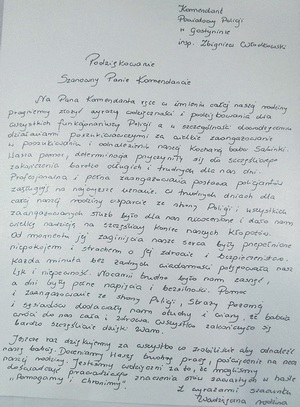 Komendant
Powiatowy Policji
w Gostyninie
insp. Zbigniew Włodkowski
Podziękowanie
Szanowny Panie Komendancie
Na Pana Komendanta ręce w imieniu całej naszej rodziny
pragniemy złożyć wyrazy wdzięczności i podziękowania dla
wszystkich funkcjonariuszy Policji a w szczególności dowodzącemu
działaniami poszukiwawczymi za wielkie zaangażowanie
w poszukiwaniu i odnalezieniu naszej kochanej babci Sabinki.
Wasza pomoc, determinacja przyczyniły się do szczęśliwego
zakończenia bardzo długich i trudnych dla nas dni.
Profesjonalna i pełna zaangażowania postawa policjantów
zasługuje na najwyższe uznanie. W trudnych dniach dla
całej naszej rodziny wsparcie ze strony Policji i wszystkich
zaangażowanych służb było dla nas nieocenione i dało nam
wielką nadzieję na szczęśliwy koniec naszych kłopotów.
Od momentu jej zaginięcia nasze serca były przepełnione
niepokojem i strachem o jej zdrowie i bezpieczeństwo.
Każda minuta bez żadnych wiadomości potęgowała nasz
lęk i niepewność. Nocami trudno było nam zasnąć,
a dni były pełne napięcia i bezsilności. Pomoc
i zaangażowanie ze strony Policji, Straży Pożarnej
i sąsiadów dodawały nam otuchy i wiary, że babcia
wróci do nas cała i zdrowa. Wszystko zakończyło się
bardzo szczęśliwie dzięki Wam.
Jeszcze raz dziękujemy za wszystko co zrobiliście aby odnaleźć
naszą babcię. Doceniamy Waszą trudną pracę, poświęcenie na rzecz
naszej rodziny. Jesteśmy wdzięczni za to, że mogliśmy
doświadczyć prawdziwego znaczenia słów zawartych w haśle
"Pomagamy i chronimy".
Z wyrazami szacunku
Wdzięczna rodzina